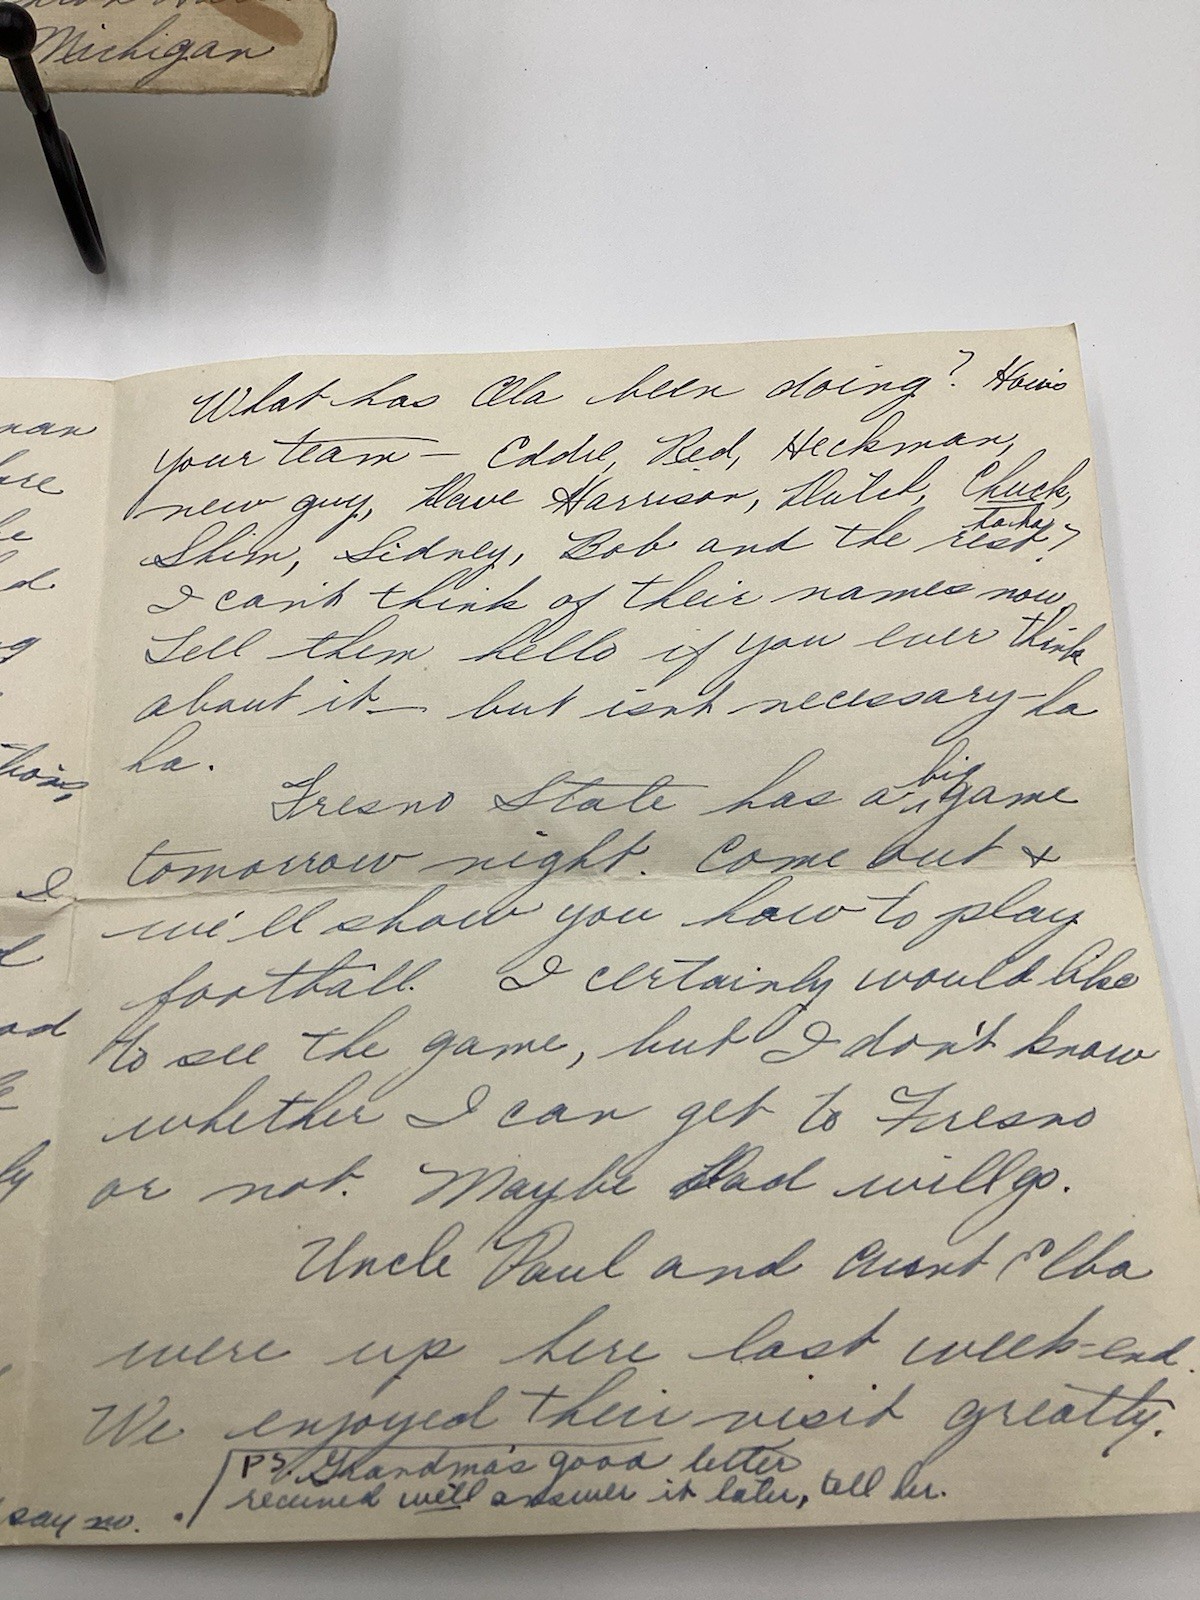 Michigan
What has Ola been doing? How's
your team — Eddie, Red, Heckman,
new guy, Dave Harrison, Dutch, Chuck,
ha ha
Shim, Sidney, Bob and the rest?
I can't think of their names now
Tell them hello if you ever think
about it — but isnt necessary - ha
ha.
big
Fresno State has a game
tomorrow night. Come out &
we'll show you how to play
football. I certainly would like
to see the game, but I don't know
whether I can get to Fresno
or not. Maybe Dad will go.
Uncle Paul and Aunt Elba
were up here last week-end.
We enjoyed their visit greatly.
P.S. Grandma's good letter
received will answer it later, tell her.
say no.